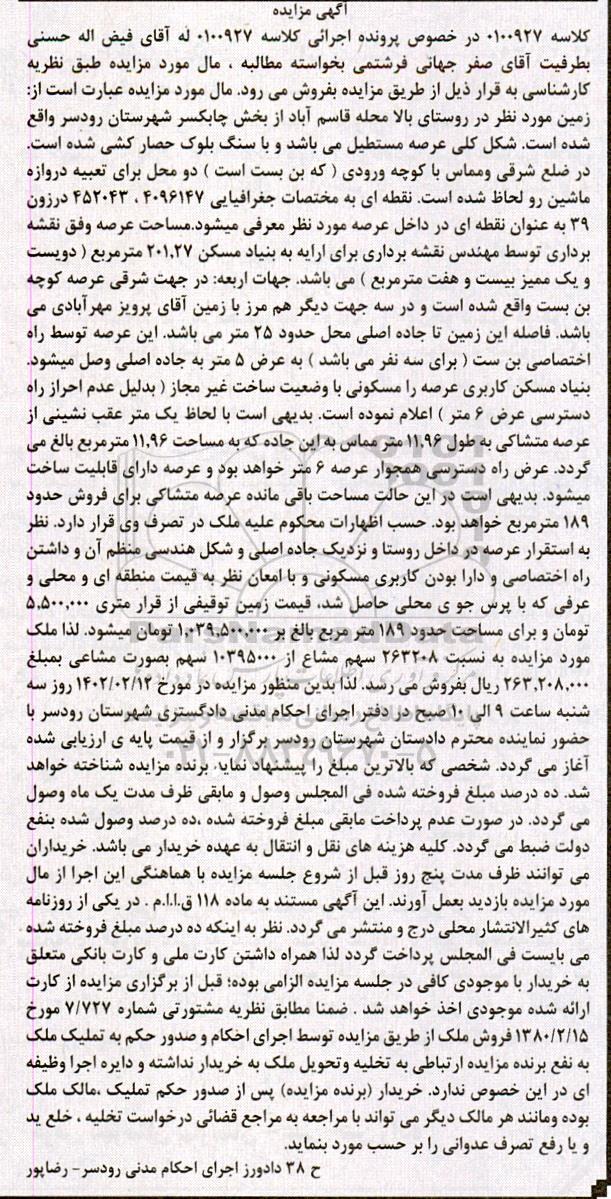 آگهی مزایده
کلاسه ۰۱۰۰۹۲۷ در خصوص پرونده اجرائی کلاسه ۰۱۰۰۹۲۷ له آقای فیض اله حسنی
بطرفیت آقای صفر جهانی فرشتمی بخواسته مطالبه ، مال مورد مزایده طبق نظریه
کارشناسی به قرار ذیل از طریق مزایده بفروش می رود. مال مورد مزایده عبارت است از:
زمین مورد نظر در روستای بالا محله قاسم آباد از بخش چابکسر شهرستان رودسر واقع
شده است. شکل کلی عرصه مستطیل می باشد و با سنگ بلوک حصار کشی شده است.
در ضلع شرقی ومماس با کوچه ورودی ( که بن بست است ) دو محل برای تعبیه دروازه
ماشین رو لحاظ شده است. نقطه ای به مختصات جغرافیایی ۴۰۹۶۱۴۷ ، ۴۵۲۰۴۳ درزون
۳۹ به عنوان نقطه ای در داخل عرصه مورد نظر معرفی میشود.مساحت عرصه وفق نقشه
برداری توسط مهندس نقشه برداری برای ارایه به بنیاد مسکن ۲۰۱,۲۷ مترمربع ( دویست
و یک ممیز بیست و هفت مترمربع ) می باشد. جهات اربعه: در جهت شرقی عرصه کوچه
بن بست واقع شده است و در سه جهت دیگر هم مرز با زمین آقای پرویز مهرآبادی می
باشد. فاصله این زمین تا جاده اصلی محل حدود ۲۵ متر می باشد. این عرصه توسط راه
اختصاصی بن ست ( برای سه نفر می باشد ) به عرض ۵ متر به جاده اصلی وصل میشود.
بنیاد مسکن کاربری عرصه را مسکونی با وضعیت ساخت غیر مجاز ( بدلیل عدم احراز راه
دسترسی عرض ۶ متر ) اعلام نموده است. بدیهی است با لحاظ یک متر عقب نشینی از
عرصه متشاکی به طول ۱۱,۹۶ متر مماس به این جاده که به مساحت ۱۱,۹۶ مترمربع بالغ می
گردد. عرض راه دسترسی همجوار عرصه ۶ متر خواهد بود و عرصه دارای قابلیت ساخت
میشود. بدیهی است در این حالت مساحت باقی مانده عرصه متشاکی برای فروش حدود
۱۸۹ مترمربع خواهد بود. حسب اظهارات محکوم علیه ملک در تصرف وی قرار دارد. نظر
به استقرار عرصه در داخل روستا و نزدیک جاده اصلی و شکل هندسی منظم آن و داشتن
راه اختصاصی و دارا بودن کاربری مسکونی و با امعان نظر به قیمت منطقه ای و محلی و
عرفی که با پرس جو ی محلی حاصل شد، قیمت زمین توقیفی از قرار متری ۵,۵۰۰,۰۰۰
تومان و برای مساحت حدود ۱۸۹ متر مربع بالغ بر ۱,۰۳۹,۵۰۰,۰۰۰ تومان میشود. لذا ملک
مورد مزایده به نسبت ۲۶۳۲۰۸ سهم مشاع از ۱۰۳۹۵۰۰۰ سهم بصورت مشاعی بمبلغ
۲۶۳,۲۰۸,۰۰۰ ریال بفروش می رسد. لذا بدین منظور مزایده در مورخ ۱۴۰۲/۰۲/۱۲ روز سه
شنبه ساعت ۹ الی ۱۰ صبح در دفتر اجرای احکام مدنی دادگستری شهرستان رودسر با
حضور نماینده محترم دادستان شهرستان رودسر برگزار و از قیمت پایه ی ارزیابی شده
آغاز می گردد. شخصی که بالاترین مبلغ را پیشنهاد نماید برنده مزایده شناخته خواهد
شد. ده درصد مبلغ فروخته شده فی المجلس وصول و مابقی ظرف مدت یک ماه وصول
می گردد. در صورت عدم پرداخت مابقی مبلغ فروخته شده ،ده درصد وصول شده بنفع
دولت ضبط می گردد. کلیه هزینه های نقل و انتقال به عهده خریدار می باشد. خریداران
می توانند ظرف مدت پنج روز قبل از شروع جلسه مزایده با هماهنگی این اجرا از مال
مورد مزایده بازدید بعمل آورند. این آگهی مستند به ماده ۱۱۸ ق.ا.ا.م . در یکی از روزنامه
های کثیرالانتشار محلی درج و منتشر می گردد. نظر به اینکه ده درصد مبلغ فروخته شده
می بایست فی المجلس پرداخت گردد لذا همراه داشتن کارت ملی و کارت بانکی متعلق
به خریدار با موجودی کافی در جلسه مزایده الزامی بوده؛ قبل از برگزاری مزایده از کارت
ارائه شده موجودی اخذ خواهد شد . ضمنا مطابق نظریه مشتورتی شماره ۷/۷۲۷ مورخ
۱۳۸۰/۲/۱۵ فروش ملک از طریق مزایده توسط اجرای احکام و صدور حکم به تملیک ملک
به نفع برنده مزایده ارتباطی به تخلیه وتحویل ملک به خریدار نداشته و دایره اجرا وظیفه
ای در این خصوص ندارد. خریدار (برنده مزایده) پس از صدور حکم تملیک ،مالک ملک
بوده ومانند هر مالک دیگر می تواند با مراجعه به مراجع قضائی درخواست تخلیه ، خلع ید
و یا رفع تصرف عدوانی را بر حسب مورد بنماید.
ح ۳۸ دادورز اجرای احکام مدنی رودسر- رضاپور